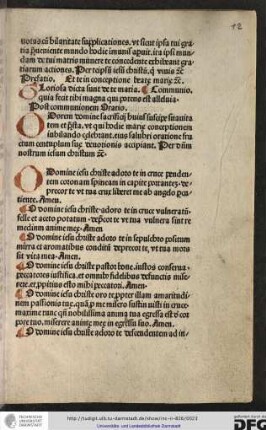 12
notuo cũ hilaritate supplicationes. vt sicut ipsa tui gratia
pueniente mundo hodie
dam de tui matris munere te concedente exhibeant gra
tiarum actiones. Per te ipsũ iesu christi. q̃ viuis
Prefatio. Et te in conceptione beate marie
Gloriosa dicta sunt de te maria. Communio.
quia fecit tibi magna qui potens est alleluia.
Post communionem Oratio.
Odorem domine sacrificij huius suscipe suauita
tem et p̃sta. vt qui hodie marie conceptionem
iubilando celebrant. eius salubri oratione fru
ctum centuplum sue deuotionis accipiant. Per dñm
nostrum iesum christum
O Domine iesu christe adoro te in cruce penden
tem coronam spineam in capite portantez. de
precor te vt tua crux liberet me ab angelo per
tiente. Amen.
O domine iesu christe adoro te in cruce vulneratũ
felle et aceto potatum. depcor te vt tua vulnera sint re
medium anime mee. Amen
O domine iesu christe adoro te in sepulchro positum
mirra et aromatibus conditũ deprecor te. vt tua mors
sit vita mea. Amen.
O domine iesu christe pastor bone. iustos conserua
peccatores iustifica. et omnibus fidelibus defunctis misere
re et. ppitius esto mihi peccatori. Amen.
O domine iesu christe oro te. ppter illam amaritudi
nem passionis tue. quã p me misero sustinuisti in cruce
maxime tunc qñ nobilissima anima tua egressa est de cor
pore tuo. miserere anime mee in egressu suo. Amen.
O domine iesu christe adoro te descendentem ad in
TECHNISCHE
UNIVERSITÄT
DARMSTADT
Universitäts- und Landesbibliothek Darmstadt
DFG